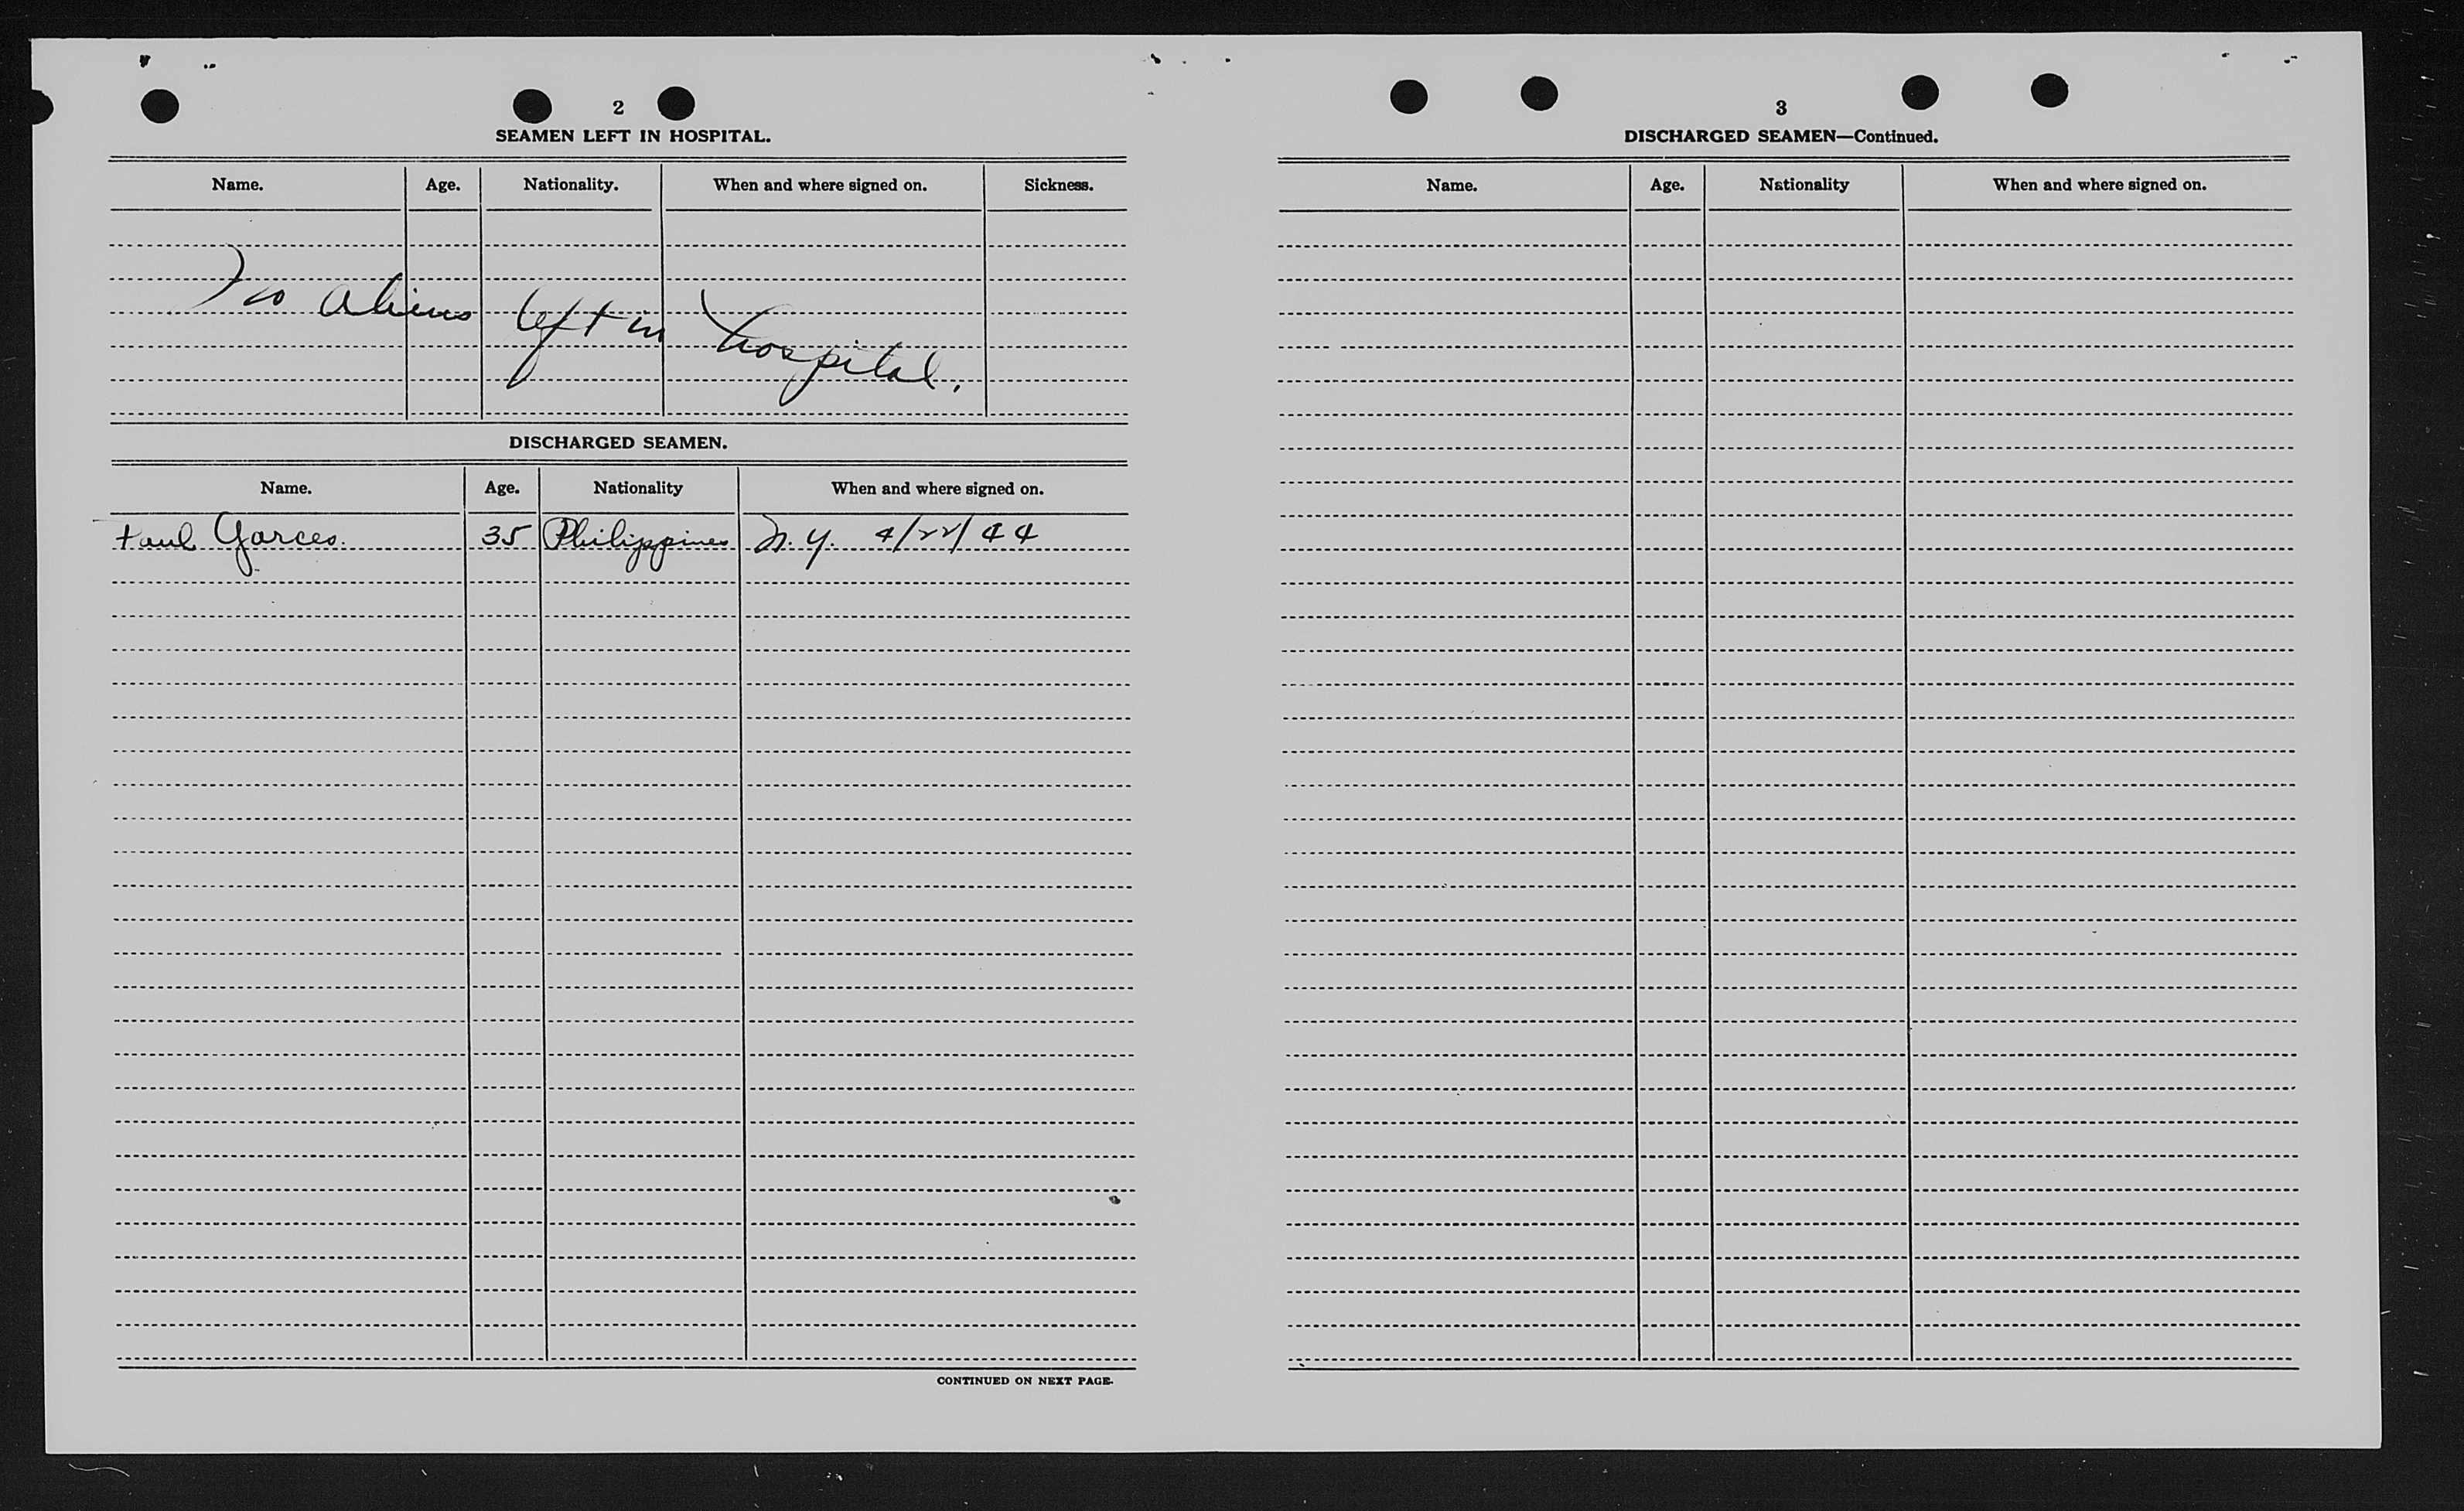 2
SEAMEN LEFT IN HOSPITAL.
Name. Age. Nationality. When and where signed on. Sickness.
No aliens left in hospital.
DISCHARGED SEAMEN.
Name. Age. Nationality When and where signed on.
Paul Garces. 35 Philippines N.Y. 4/22/44
CONTINUED ON NEXT PAGE.
3
DISCHARGED SEAMEN—Continued.
Name. Age. Nationality When and where signed on.